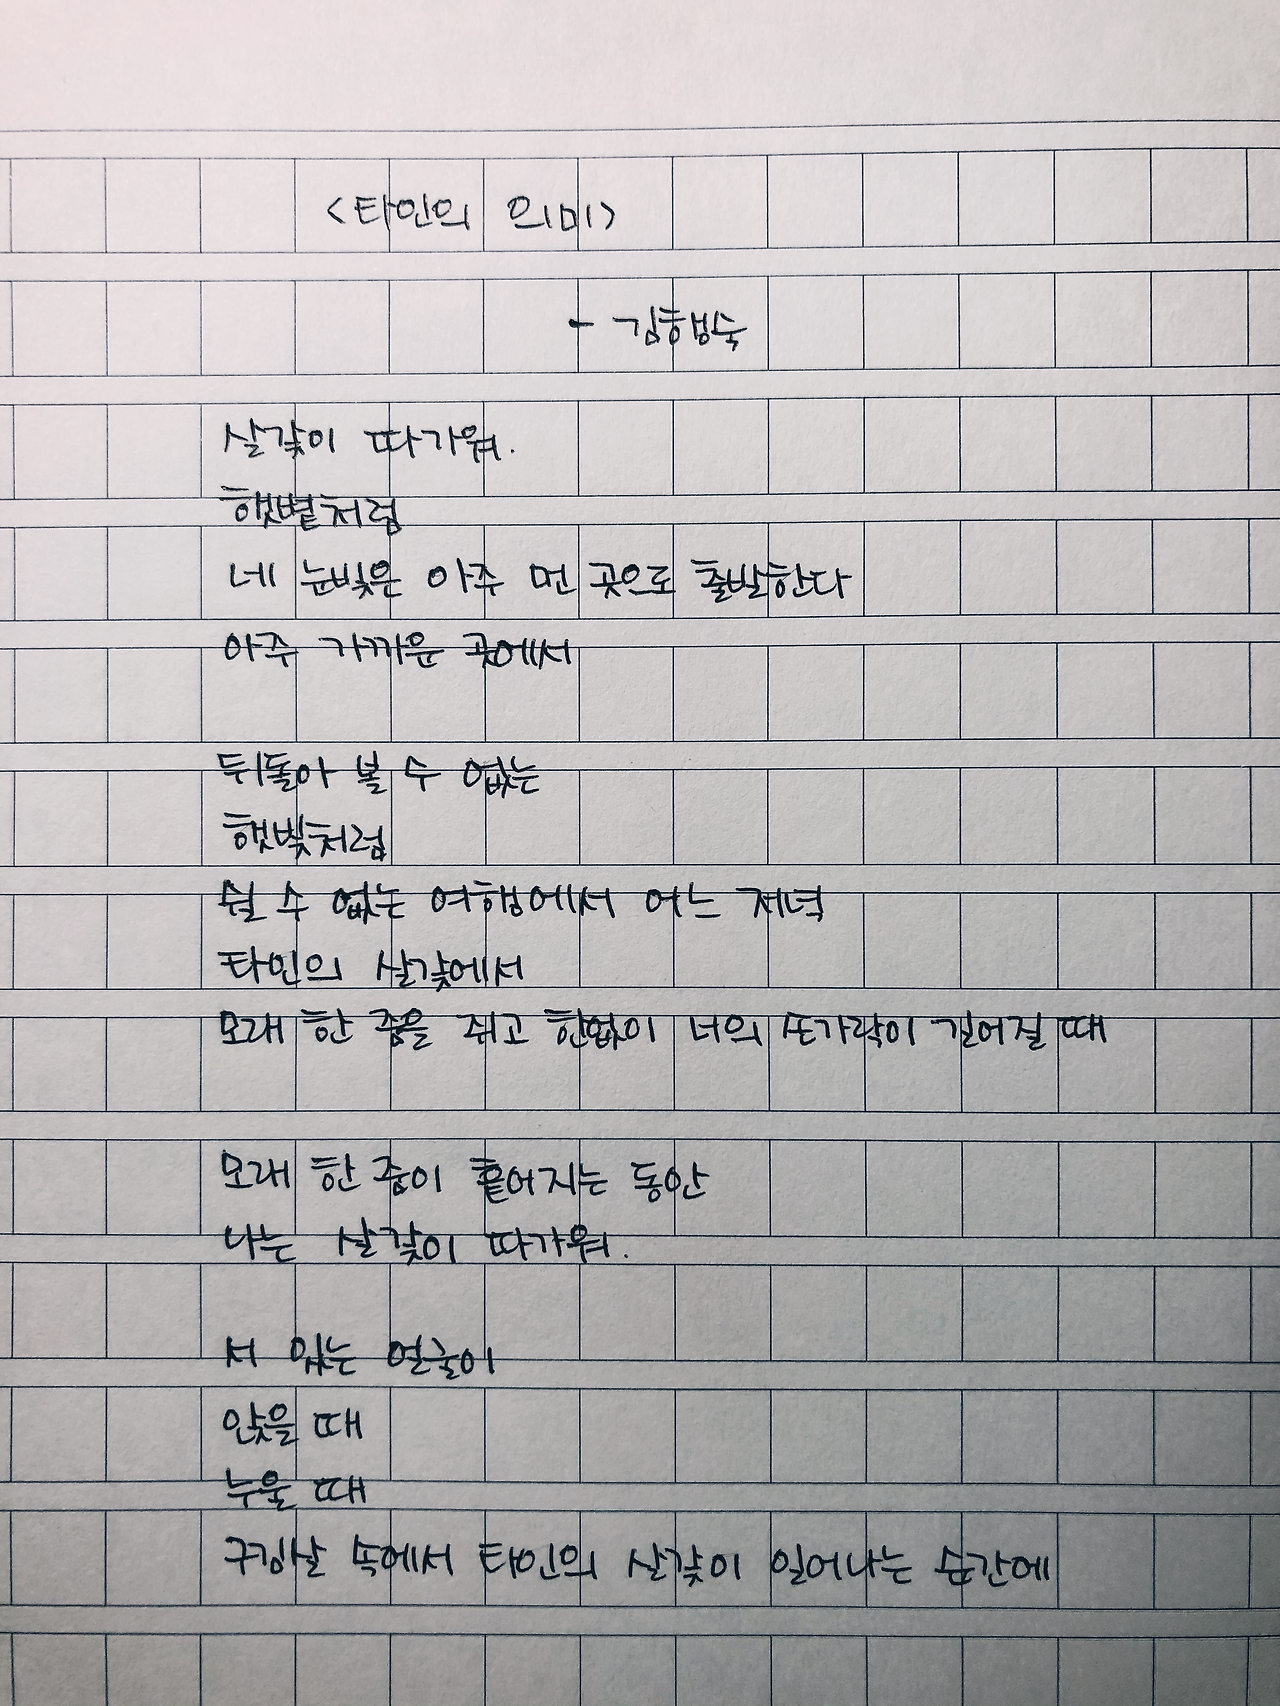 <타인의 의미>
- 김행숙
살갗이 따가워.
햇볕처럼
네 눈빛은 아주 먼 곳으로 출발한다
아주 가까운 곳에서
뒤돌아 볼 수 없는
햇빛처럼
쉴 수 없는 여행에서 어느 저녁
타인의 살갗에서
모래 한 줌을 쥐고 한없이 너의 손가락이 길어질 때
모래 한 줌이 흩어지는 동안
나는 살갗이 따가워.
서 있는 얼굴이
앉을 때
누울 때
구김살 속에서 타인의 살갗이 일어나는 순간에